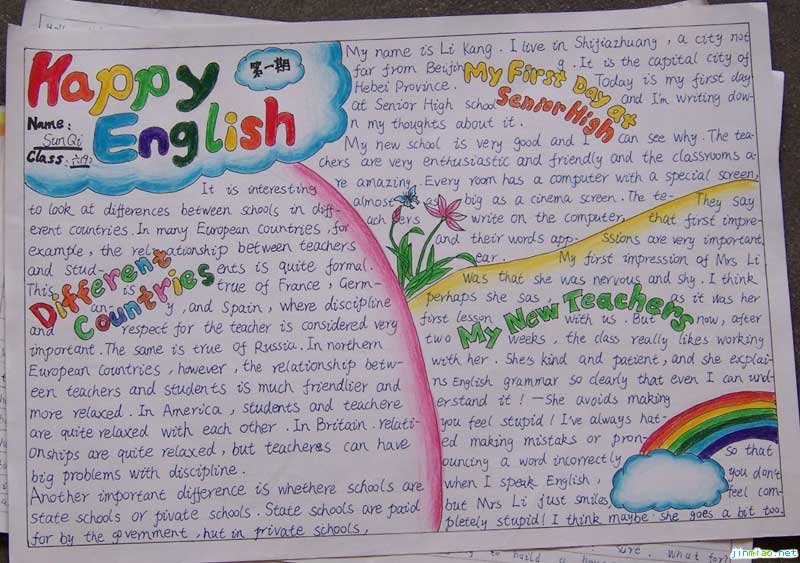 Happy
English
第一期
Name:
Sun Qi
Class:
It is interesting
to look at differences between schools in diff-
erent countries. In many European countries, for
example, the relationship between teachers
and students is quite formal.
This is true of France, Germ-
any, and Spain, where discipline
and respect for the teacher is considered very
important. The same is true of Russia. In northern
European countries, however, the relationship betw-
een teachers and students is much friendlier and
more relaxed. In America, students and teachere
are quite relaxed with each other. In Britain. relati-
onships are quite relaxed, but teachers can have
big problems with discipline.
Another important difference is whethere schools are
state schools or pivate schools. State schools are paid
for by the government, but in private schools,
Different
Countries
My name is Li Kang. I live in Shijiazhuang, a city not
far from Beijing. It is the capital city of
Hebei Province. Today is my first day
at Senior High school and I'm writing dow-
n my thoughts about it.
My First Day at
Senior High
My new school is very good and I can see why. The tea-
chers are very enthusiastic and friendly and the classrooms a-
re amazing. Every room has a computer with a special screen,
almost as big as a cinema screen. The te-
achers write on the computer,
and their words app-
ear.
They say
that first impre-
ssions are very important.
My first impression of Mrs Li
was that she was nervous and shy. I think
perhaps she sas, as it was her
first lesson with us. But now, after
two weeks, the class really likes working
with her. She's kind and patient, and she explai-
ns English grammar so clearly that even I can und-
erstand it! — She avoids making
you feel stupid! I've always hat-
ed making mistaks or pron-
ouncing a word incorrectly
when I speak English,
but Mrs Li just smiles, so that
you don't
feel com-
pletely stupid! I think maybe she goes a bit too
My New Teachers
sure. What for?
to build a
jinmiao.net